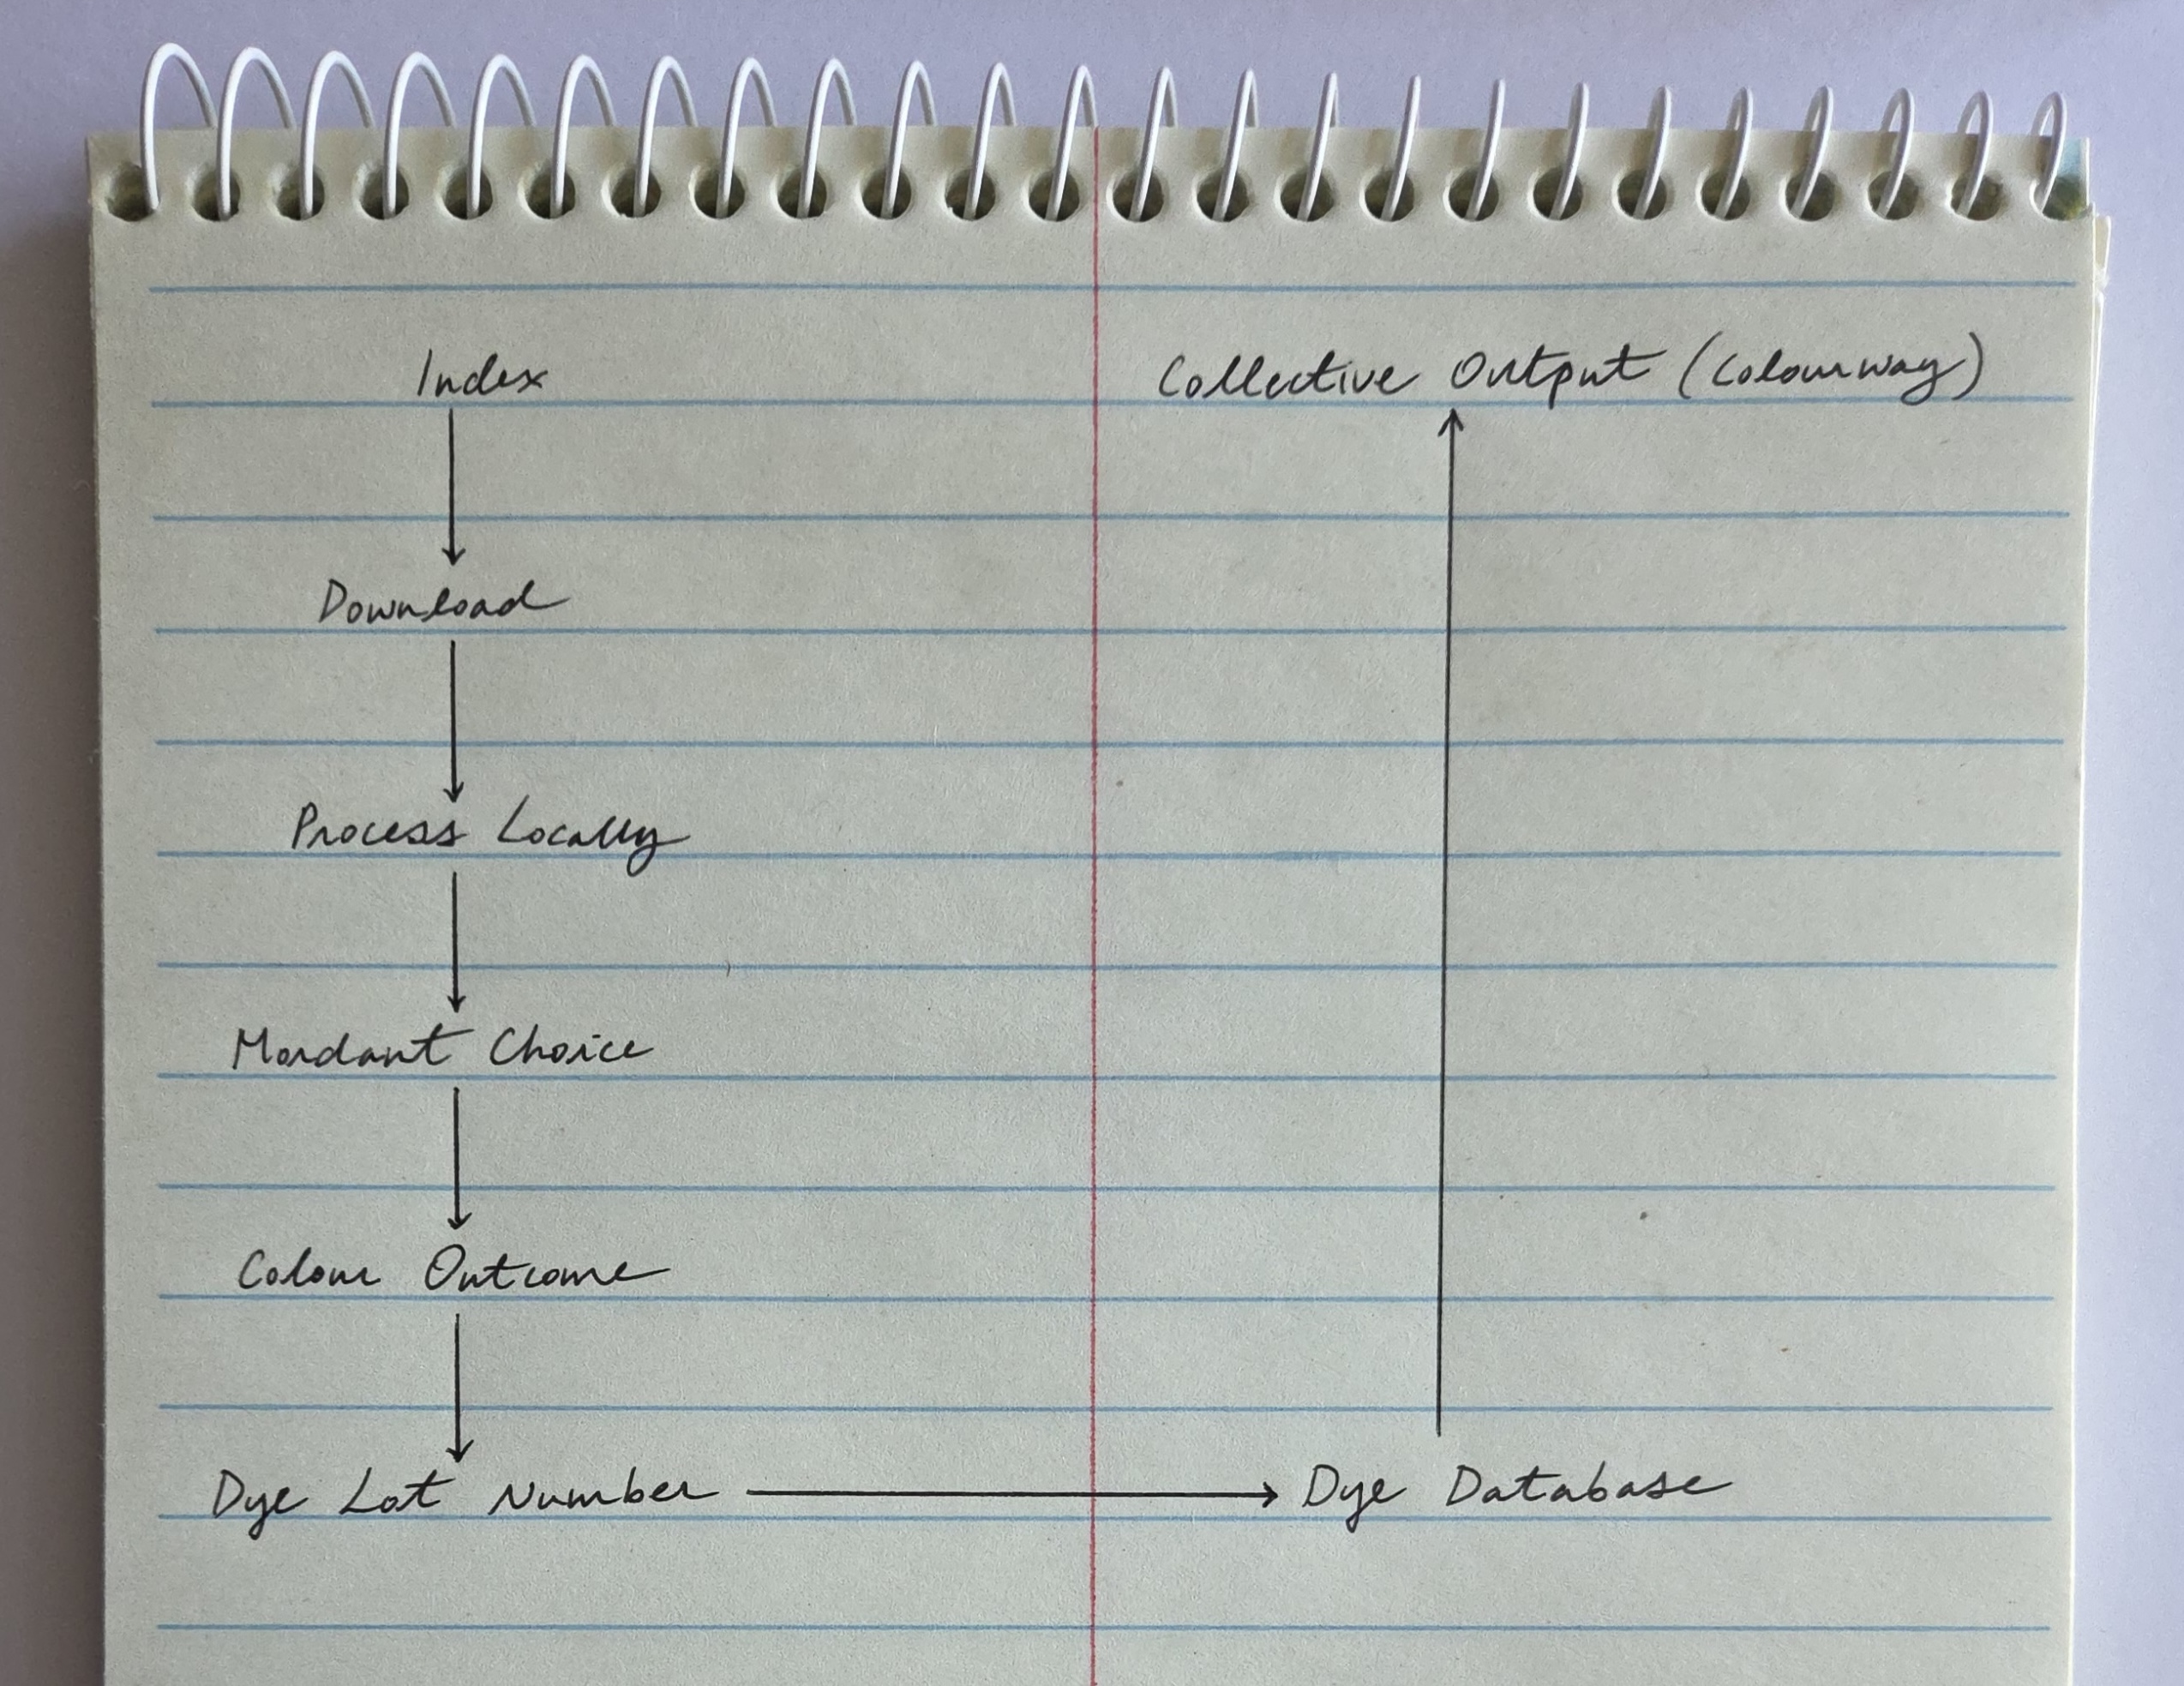 Index
Download
Process Locally
Mordant Choice
Colour Outcome
Dye Lot Number
Dye Database
Collective Output (Colourway)